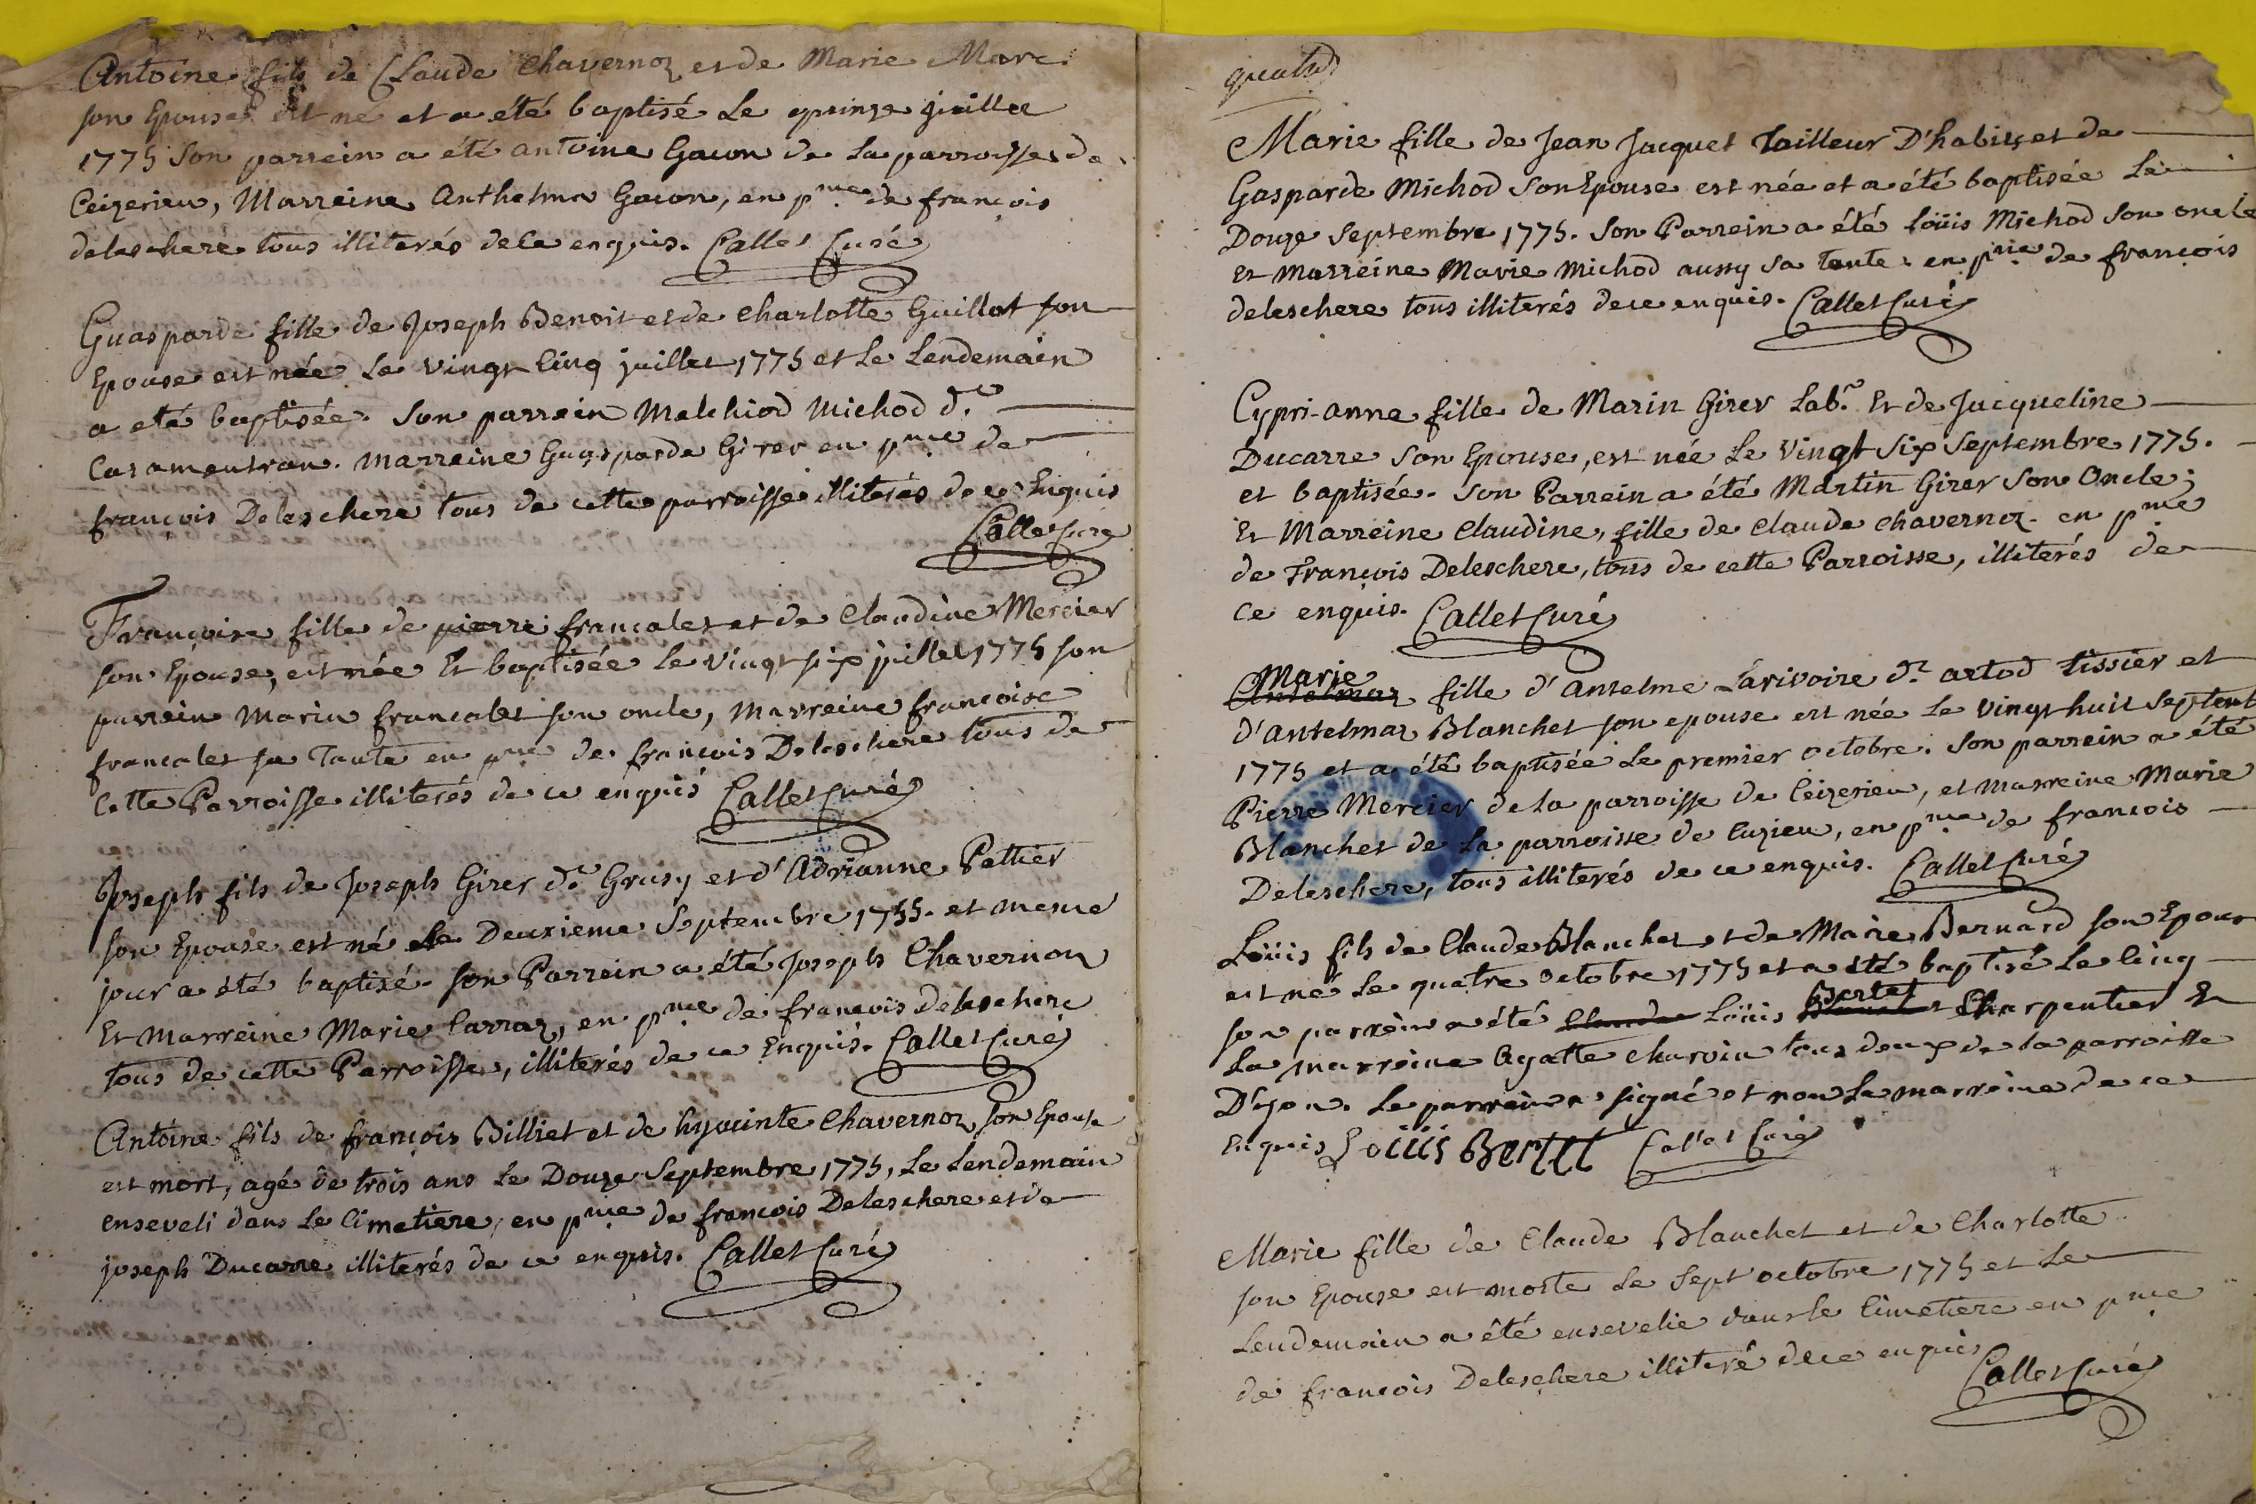 Antoine fils de Claude Chavernoz et de Marie Marc
son Epouse est né et a été baptisé Le quinze juillet
1775 Son parrein a été antoine Gacon de La parroisse de
Ceizerieu, Marreine Anthelma Gacon, en pnce de françois
deleschere tous illiterés de ce enquis. Callet Curé
Guasparde fille de Joseph Benoit et de Charlotte Guillot son
Epouse est née Le vingt Cinq juillet 1775 et Le Lendemain
a eté baptisée. Son parrein Melchiod Michod d.t
Caramentran. marreine Guasparde Girer en pnce de
françois Deleschere tous de cette parroisse illiterés de ce Enquis
Callet Curé
Françoise fille de pierre francalet et de Claudine Mercier
son Epouse, est née Et baptisée Le Vingt six juillet 1775 son
parrein Marin francalet son oncle, Marreine françoise
francalet sa Tante en pnce de françois Deleschere tous de
Cette Parroisse illiterés de ce enquis Callet Curé
Joseph fils de Joseph Girer d.t Grusy et d'Adrianne Pettier
son Epouse est né Le Deuxieme Septembre 1755. et meme
jour a été baptisé. son Parrein a été Joseph Chavernoz
Et Marreine Marie Carraz, en pnce de françois deleschere
tous de cette Parroisse, illiterés de ce Enquis. Callet Curé
Antoine fils de françois Billiet et de hyacinte Chavernoz son Epouse
est mort, agé de trois ans Le Douze Septembre 1775, Le Lendemain
enseveli dans Le Cimetiere, en pnce de françois Deleschere et de
joseph Ducarre illiterés de ce enquis. Callet Curé
quatre
Marie fille de Jean Jacquet Tailleur D'habits et de
Gasparde Michod Son Epouse est née et a été baptisée Le
Douze Septembre 1775. Son Parrein a été Loüis Michod Son oncle
Et Marreine Marie Michod aussy sa Tante en pnce de françois
deleschere tous illiterés de ce enquis. Callet Curé
Cypri-anne fille de Marin Girer Lab.r Et de Jacqueline
Ducarre Son Epouse, est née Le Vingt Six Septembre 1775.
et baptisée. Son Parrein a été Martin Girer Son Oncle;
Et Marreine Claudine, fille de Claude Chavernoz en pnce
de François Deleschere, tous de cette Parroisse, illiterés de
ce enquis. Callet Curé
Marie
Antelmaz fille d'Antelme Larivoire d.t artod tissier et
d'Antelmaz Blanchet son epouse est née Le vingt huit Septemb
1775 et a été baptisée Le premier octobre. Son parrein a été
Pierre Mercier de La parroisse de Ceizerieu, et Marreine Marie
Blanchet de La parroisse de Cuzieu, en pnce de françois
Deleschere, tous illiterés de ce enquis. Callet Curé
Loüis fils de Claude Blanchet et de Marie Bernard son Epouse
est né Le quatre octobre 1775 et a été baptisé Le Cinq
Bertet
son parrein a été Claude Loüis Charpentier Et
La marreine Agatte Charvin tous deux de la parroisse
D'yon. Le parrein a signé et non La marreine de ce
Enquis Loüis Bertet Callet Curé
Marie fille de Claude Blanchet et de Charlotte
son Epouse est morte Le Sept octobre 1775 et Le
Lendemain a été ensevelie dans Le Cimetiere en pnce
de françois Deleschere illiteré de ce enquis
Callet Curé